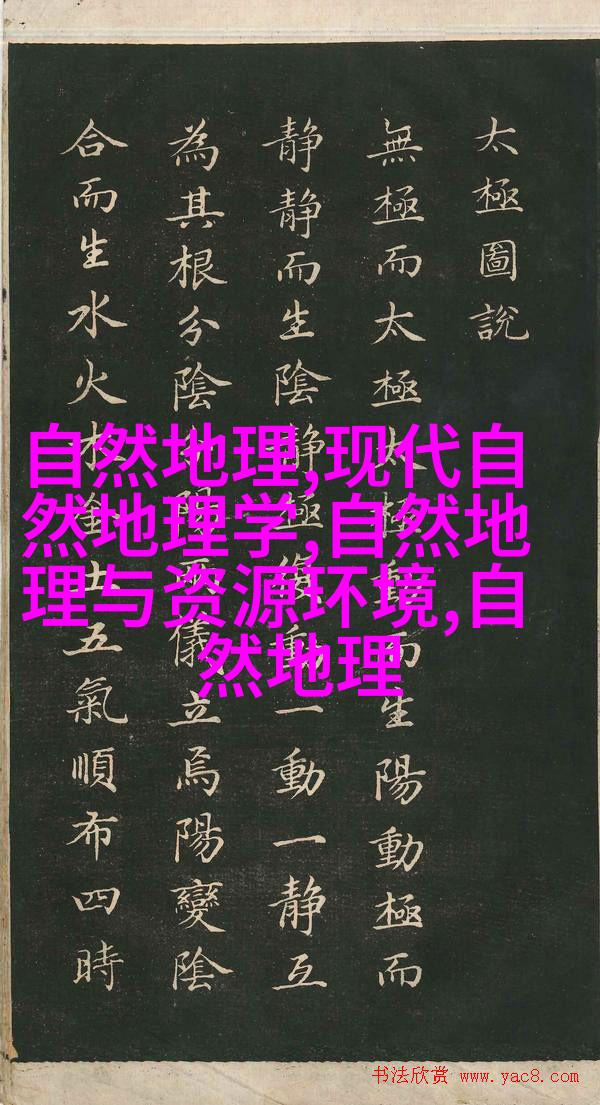 太極圖說
無極而太極太極動而生陽動極而
静静而生陰静極復動一動一静互
為其根分陰分陽兩儀立焉陽變陰
合而生水火木金土五氣順布四時
自然地理,现代自
然地理学,自然地
理与资源环境,自
然地理
书法欣赏 www.yac8.com